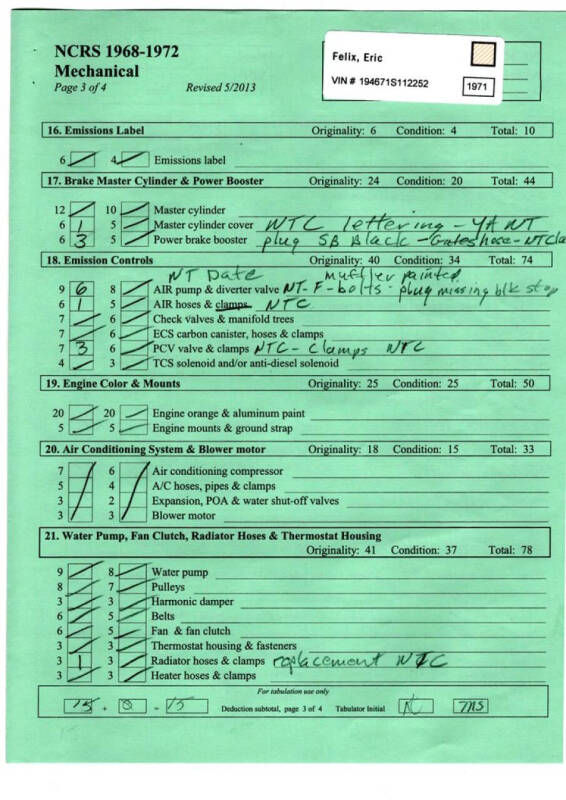 NCRS 1968-1972
Mechanical
Page 3 of 4 Revised 5/2013
Felix, Eric
VIN # 194671S112252
1971
16. Emissions Label Originality: 6 Condition: 4 Total: 10
6 4 Emissions label
17. Brake Master Cylinder & Power Booster Originality: 24 Condition: 20 Total: 44
12 10 Master cylinder
6 1 5 Master cylinder cover NTC lettering - YA NT
6 3 5 Power brake booster plug SB Black - Gates hose - NT Cla
18. Emission Controls Originality: 40 Condition: 34 Total: 74
NT Date muffler painted
9 6 8 AIR pump & diverter valve NT-F-bolts - plug missing blk stop
6 1 5 AIR hoses & clamps NTC
7 6 Check valves & manifold trees
7 6 ECS carbon canister, hoses & clamps
7 3 6 PCV valve & clamps NTC - Clamps NTC
4 3 TCS solenoid and/or anti-diesel solenoid
19. Engine Color & Mounts Originality: 25 Condition: 25 Total: 50
20 20 Engine orange & aluminum paint
5 5 Engine mounts & ground strap
20. Air Conditioning System & Blower motor Originality: 18 Condition: 15 Total: 33
7 6 Air conditioning compressor
5 4 A/C hoses, pipes & clamps
3 2 Expansion, POA & water shut-off valves
3 3 Blower motor
21. Water Pump, Fan Clutch, Radiator Hoses & Thermostat Housing
Originality: 41 Condition: 37 Total: 78
9 8 Water pump
8 7 Pulleys
3 3 Harmonic damper
6 5 Belts
6 5 Fan & fan clutch
3 3 Thermostat housing & fasteners
3 1 3 Radiator hoses & clamps replacement NTC
3 3 Heater hoses & clamps
For tabulation use only
15 + 0 = 15 Deduction subtotal, page 3 of 4 Tabulator Initial TMS